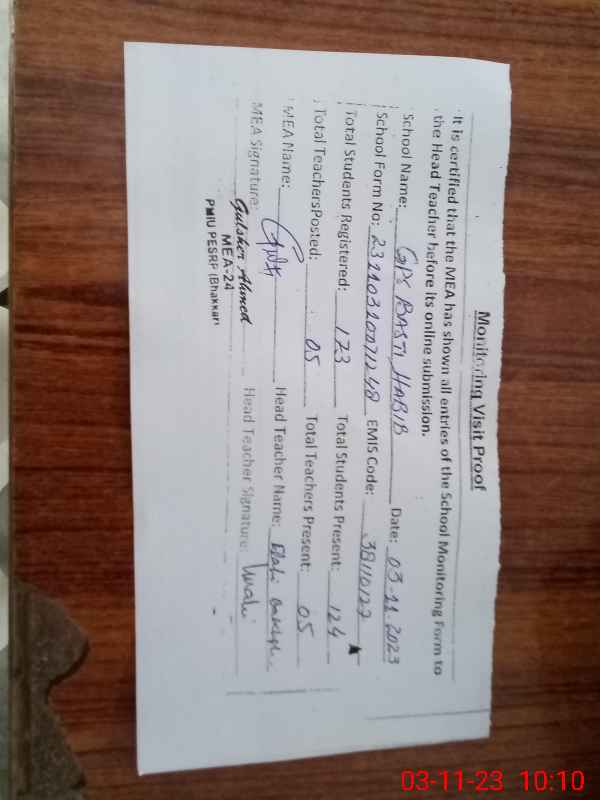 Monitoring Visit Proof
It is certified that the MEA has shown all entries of the School Monitoring Form to
the Head Teacher before its online submission.
School Name: GPS BASTI HABIB Date: 03-11-2023
School Form No: EMIS Code: 38110127
Total Students Registered: 173 Total Students Present: 124
Total TeachersPosted: 05 Total Teachers Present: 05
MEA Name: Head Teacher Name: Elahi Bakhsh
MEA Signature: Gulsher Ahmed Head Teacher Signature:
MEA-24
PMIU PESRP (Bhakkar)
03-11-23 10:10